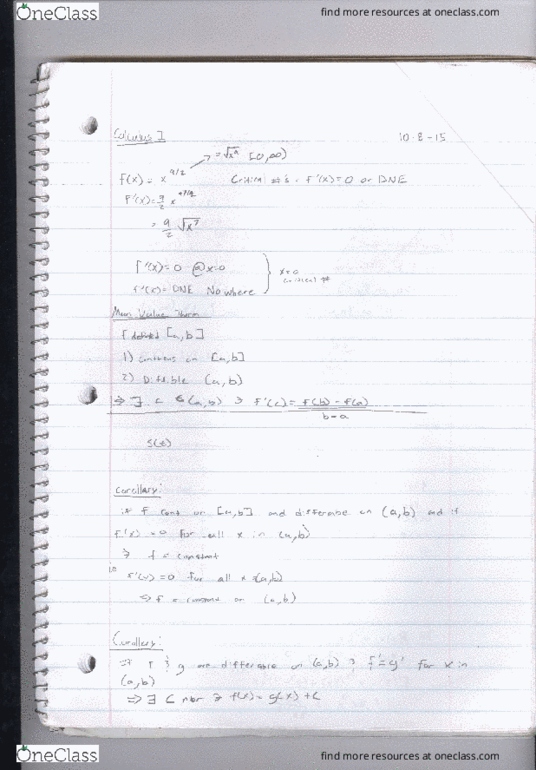 OneClass
find more resources at oneclass.com
Calculus I
10-8-15
= √x⁹ [0,∞)
f(x) = x^9/2
Critical #'s - f'(x)=0 or DNE
f'(x)= 9/2 x^7/2
= 9/2 √x⁷
f'(x)=0 @ x=0
f'(x)= DNE Nowhere
x=0
critical #
Mean Value Thrm
f defined [a,b]
1) continous on [a,b]
2) Diffible (a,b)
⇒ ∃ c ∈ (a,b) ∋ f'(c) = f(b) - f(a)
b-a
s(t)
Corollary:
if f cont on [a,b] and differable on (a,b) and if
f'(x) = 0 for all x in (a,b)
⇒ f = constant
f'(x) = 0 for all x ∈ (a,b)
⇒ f = constant on (a,b)
Corollary:
If f & g are differable on (a,b) & f'=g' for x in
(a,b)
⇒ ∃ C nbr ∋ f(x) = g(x) + C
OneClass
find more resources at oneclass.com